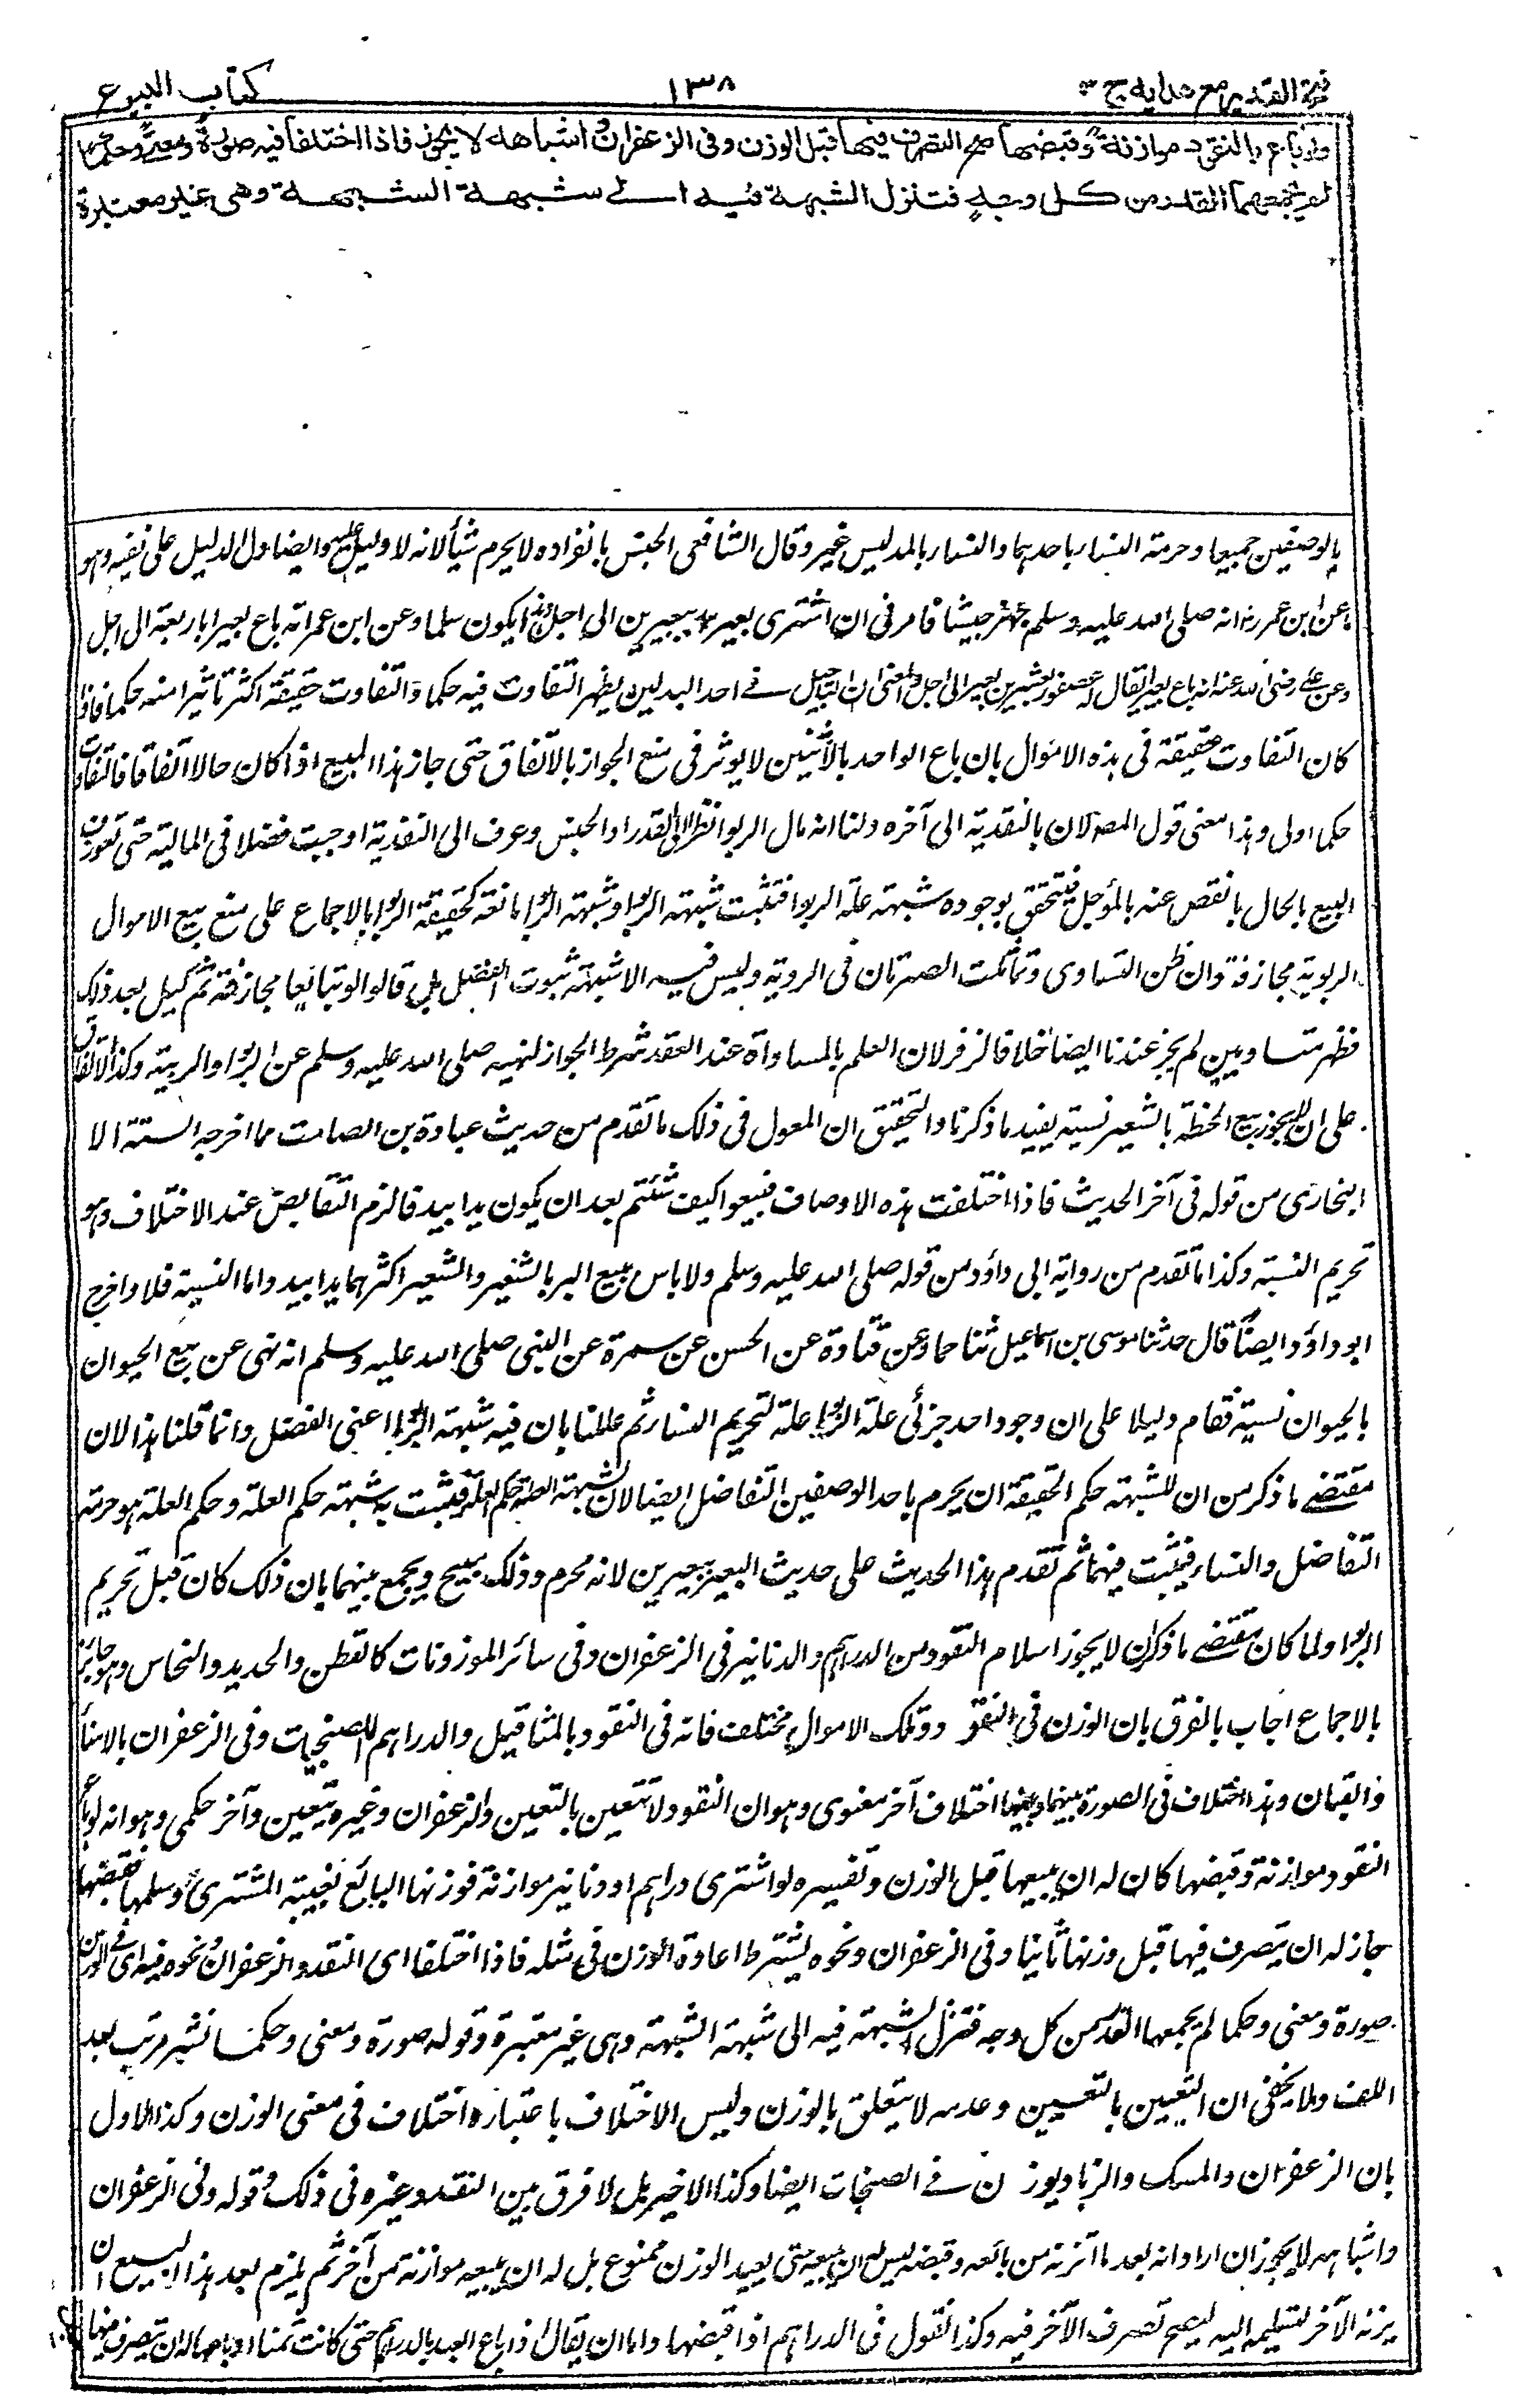 فتح القدير مع هدايه ج ٣
١٣٨
كتاب البيوع
ولو باع بالنقود موازنة وقبضها صح التصرف فيها قبل الوزن وفى الزعفران واشباهه لا يجوز فاذا اختلفا فيه صورة ومعنى وحكما
لم يجمعهما القدر من كل وجه فتنزل الشبهة فيه الى شبهة الشبهة وهى غير معتبرة
بالوصفين جميعا وحرمة النساء باحدهما والنساء بالمد ليس غير وقال الشافعى الجنس بانفراده لا يحرم شيأ لانه لا دليل عليه وايضا دل الدليل على نفيه وهو
عن ابن عمر رض انه صلى الله عليه وسلم جهز جيشا فامر فى ان اشترى بعير ببعيرين الى اجل يكون سلما وعن ابن عمر انه باع بعيرا باربعة الى اجل
وعن على رضى الله عنه انه باع بعيرا يقال له عصفور بعشرين بعيرا الى اجل والمعنى ان التاجيل فى احد البدلين يظهر التفاوت فيه حكما والتفاوت حقيقة اكثر تاثيرا منه حكما فاذا
كان التفاوت حقيقة فى هذه الاموال بان باع الواحد بالاثنين لا يوثر فى منع الجواز بالاتفاق حتى جاز هذا المبيع اذا كان حالا اتفاقا فالتفاوت
حكما اولى وهذا معنى قول المصر لان بالنقدية الى آخره ولنا انه مال الربوا نظرا الى القدر او الجنس وعرف الى النقدية اوجبت فضلا فى المالية حتى تعورف
البيع بالحال بانقص عنه بالمؤجل فيتحقق بوجوده شبهة علة الربوا فتثبت شبهة الربوا وشبهة الربوا مانعة كحقيقة الربوا بالاجماع على منع بيع الاموال
الربوية مجازفة وان ظن التساوى وتماثلت الصبرتان فى الروية وليس فيه الا شبهة ثبوت الفضل بل قالوا لو تبايعا مجازفة ثم كيل بعد ذلك
فظهر متساويين لم يجز عندنا ايضا خلافا لزفر لان العلم بالمساواة عند العقد شرط الجواز لنهيه صلى الله عليه وسلم عن الربوا والريبة وكذا الاتفاق
على ان لا يجوز بيع الحنطة بالشعير نسية يفيد ما ذكرنا والتحقيق ان المعول فى ذلك ما تقدم من حديث عبادة بن الصامت مما اخرجه الستة الا
البخارى من قوله فى آخر الحديث فاذا اختلفت هذه الاوصاف فبيعوا كيف شئتم بعد ان يكون يدا بيد فالزم التقابض عند الاختلاف وهو
تحريم النسية وكذا ما تقدم من رواية ابى داؤد من قوله صلى الله عليه وسلم ولا باس ببيع البر بالشعير والشعير اكثرهما يدا بيد واما النسية فلا واخرج
ابو داؤد ايضا قال حدثنا موسى بن اسماعيل ثنا حماد عن قتادة عن الحسن عن سمرة عن النبى صلى الله عليه وسلم انه نهى عن بيع الحيوان
بالحيوان نسية فقام دليلا على ان وجود احد جزئى علة الربوا علة لتحريم النساء ثم عللنا بان فيه شبهة الربوا اعنى الفضل وانما قلنا هذا لان
مقتضى ما ذكر من ان للشبهة حكم الحقيقة ان يحرم باحد الوصفين التفاضل ايضا لان لشبهة العلة حكم العلة فيثبت به شبهة حكم العلة وحكم العلة هو حرمة
التفاضل والنساء فيثبت فيهما ثم تقدم هذا الحديث على حديث البعير ببعيرين لانه محرم وذلك مبيح ويجمع بينهما بان ذلك كان قبل تحريم
الربوا ولما كان مقتضى ما ذكر ان لا يجوز اسلام النقود من الدراهم والدنانير فى الزعفران وفى سائر الموزونات كالقطن والحديد والنحاس وهو جائز
بالاجماع اجاب بالفرق بان الوزن فى النقود وتلك الاموال مختلف فانه فى النقود بالمثاقيل والدراهم الصنجات وفى الزعفران بالامنأ
والقبان وهذا اختلاف فى الصورة بينهما وبينهما اختلاف آخر معنوى وهو ان النقود لا تتعين بالتعين والزعفران وغيره يتعين وآخر حكمى وهو انه لو باع
النقود موازنة وقبضها كان له ان يبيعها قبل الوزن وتفسيره لو اشترى دراهم او دنانير موازنة فوزنها البائع بغيبة المشترى وسلمها فقبضها
جاز له ان يتصرف فيها قبل وزنها ثانيا وفى الزعفران ونحوه يشترط اعادة الوزن فى مثله فاذا اختلفا اى النقد والزعفران ونحوه فيه اى فى الوزن
صورة ومعنى وحكما لم يجمعهما القدر من كل وجه فتنزل الشبهة فيه الى شبهة الشبهة وهى غير معتبرة وقوله صورة ومعنى وحكما نشر مرتب بعد
اللف ولا يخفى ان التعيين بالتعيين وعدمه لا يتعلق بالوزن وليس الاختلاف باعتباره اختلاف فى معنى الوزن وكذا الاول
بان الزعفران والمسك والزباد يوزن فى الصنجات ايضا وكذا الاخير بل لا فرق بين النقد وغيره فى ذلك وقوله وفى الزعفران
واشباهه لا يجوز ان اراد انه بعد ما اتزنه من بائعه وقبضه ليس له ان يبيعه حتى يعيد الوزن ممنوع بل له ان يبيعه موازنة من آخر ثم يلزم بعد هذا البيع ان
يزنه الآخر لتسليمه اليه ليصح تصرف الآخر فيه وكذا نقول فى الدراهم اذا قبضها واما ان يقال اذا باع العبد بالدراهم حتى كانت ثمنا او باعها له ان يتصرف فيها